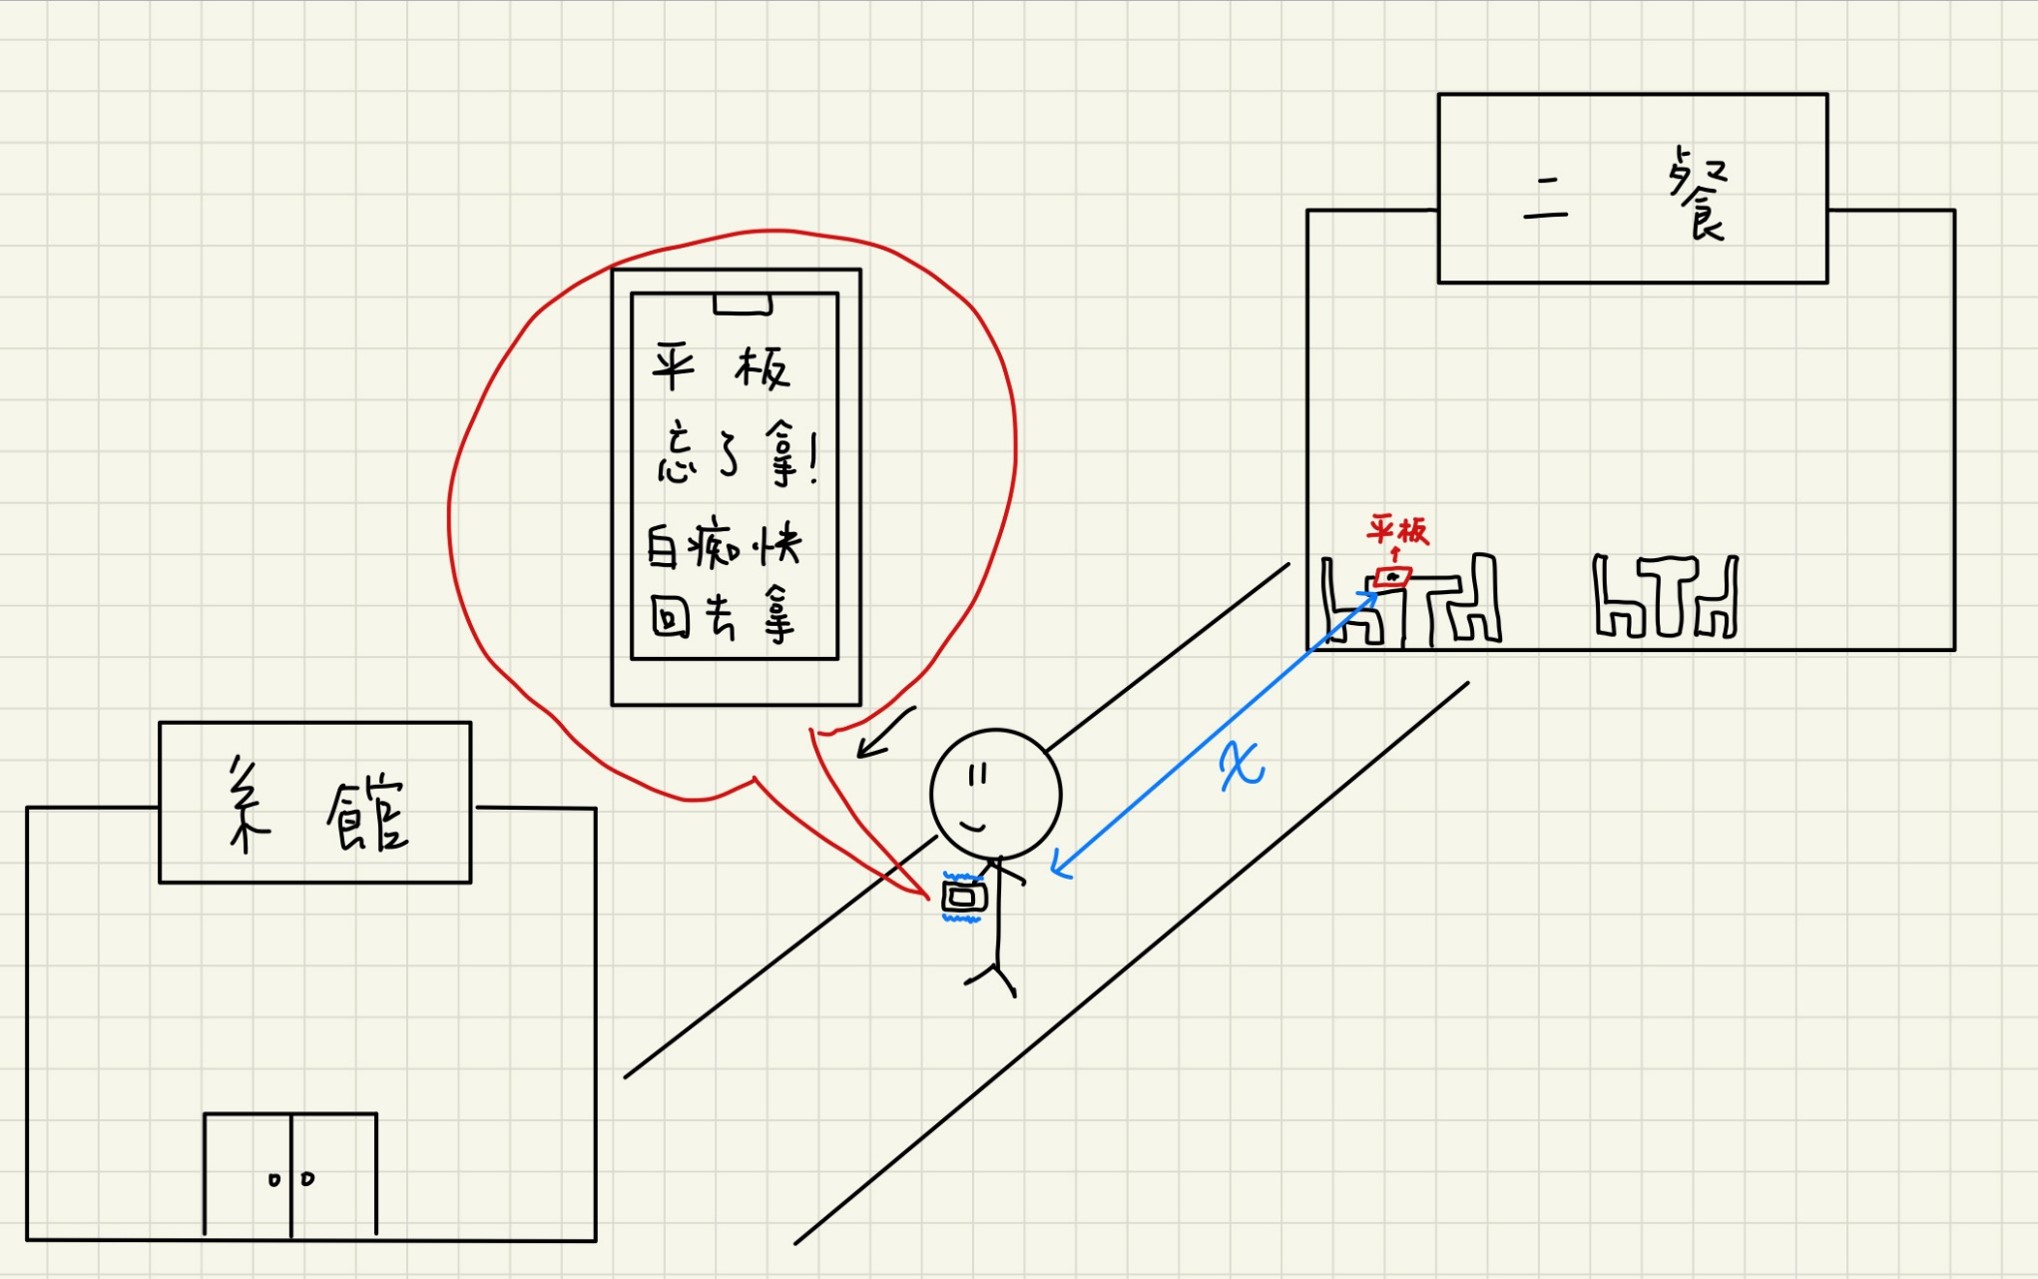 二 餐
平 板
忘了拿!
白痴快
回去拿
平板
x
系 館